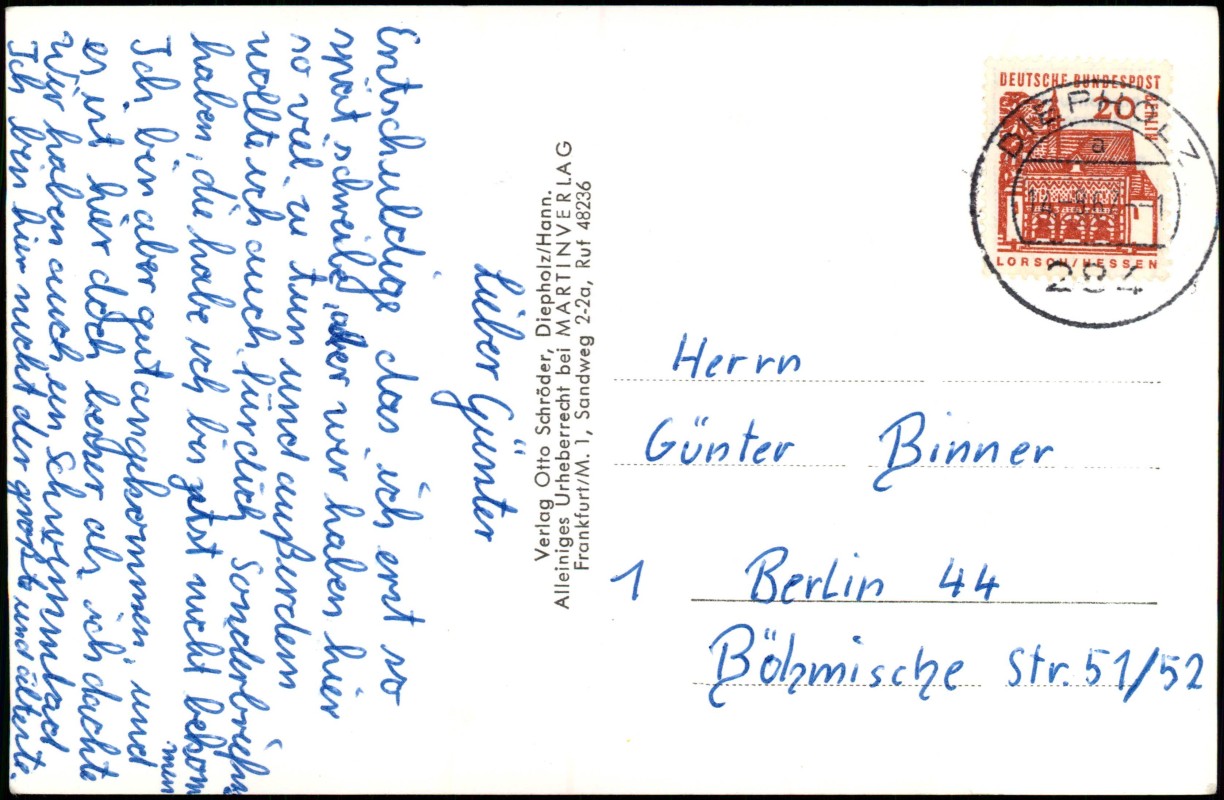 Lieber Günter
Entschuldige das ich erst so
spät schreib, aber wir haben hier
so viel zu tun und außerdem
wollte ich auch für dich Sonderbriefm
haben, die habe ich bis jetzt nicht bekom
men
Ich bin aber gut angekommen, und
es ist hier doch besser als ich dachte
Wir haben auch ein Schwimmbad
Ich bin hier nicht der größte und älteste.
Verlag Otto Schröder, Diepholz/Hann.
Alleiniges Urheberrecht bei MARTINVERLAG
Frankfurt/M. 1, Sandweg 2-2a, Ruf 48236
DEUTSCHE BUNDESPOST
20
BERLIN
LORSCH/HESSEN
DIEPHOLZ
a
284
Herrn
Günter Binner
1 Berlin 44
Böhmische Str. 51/52